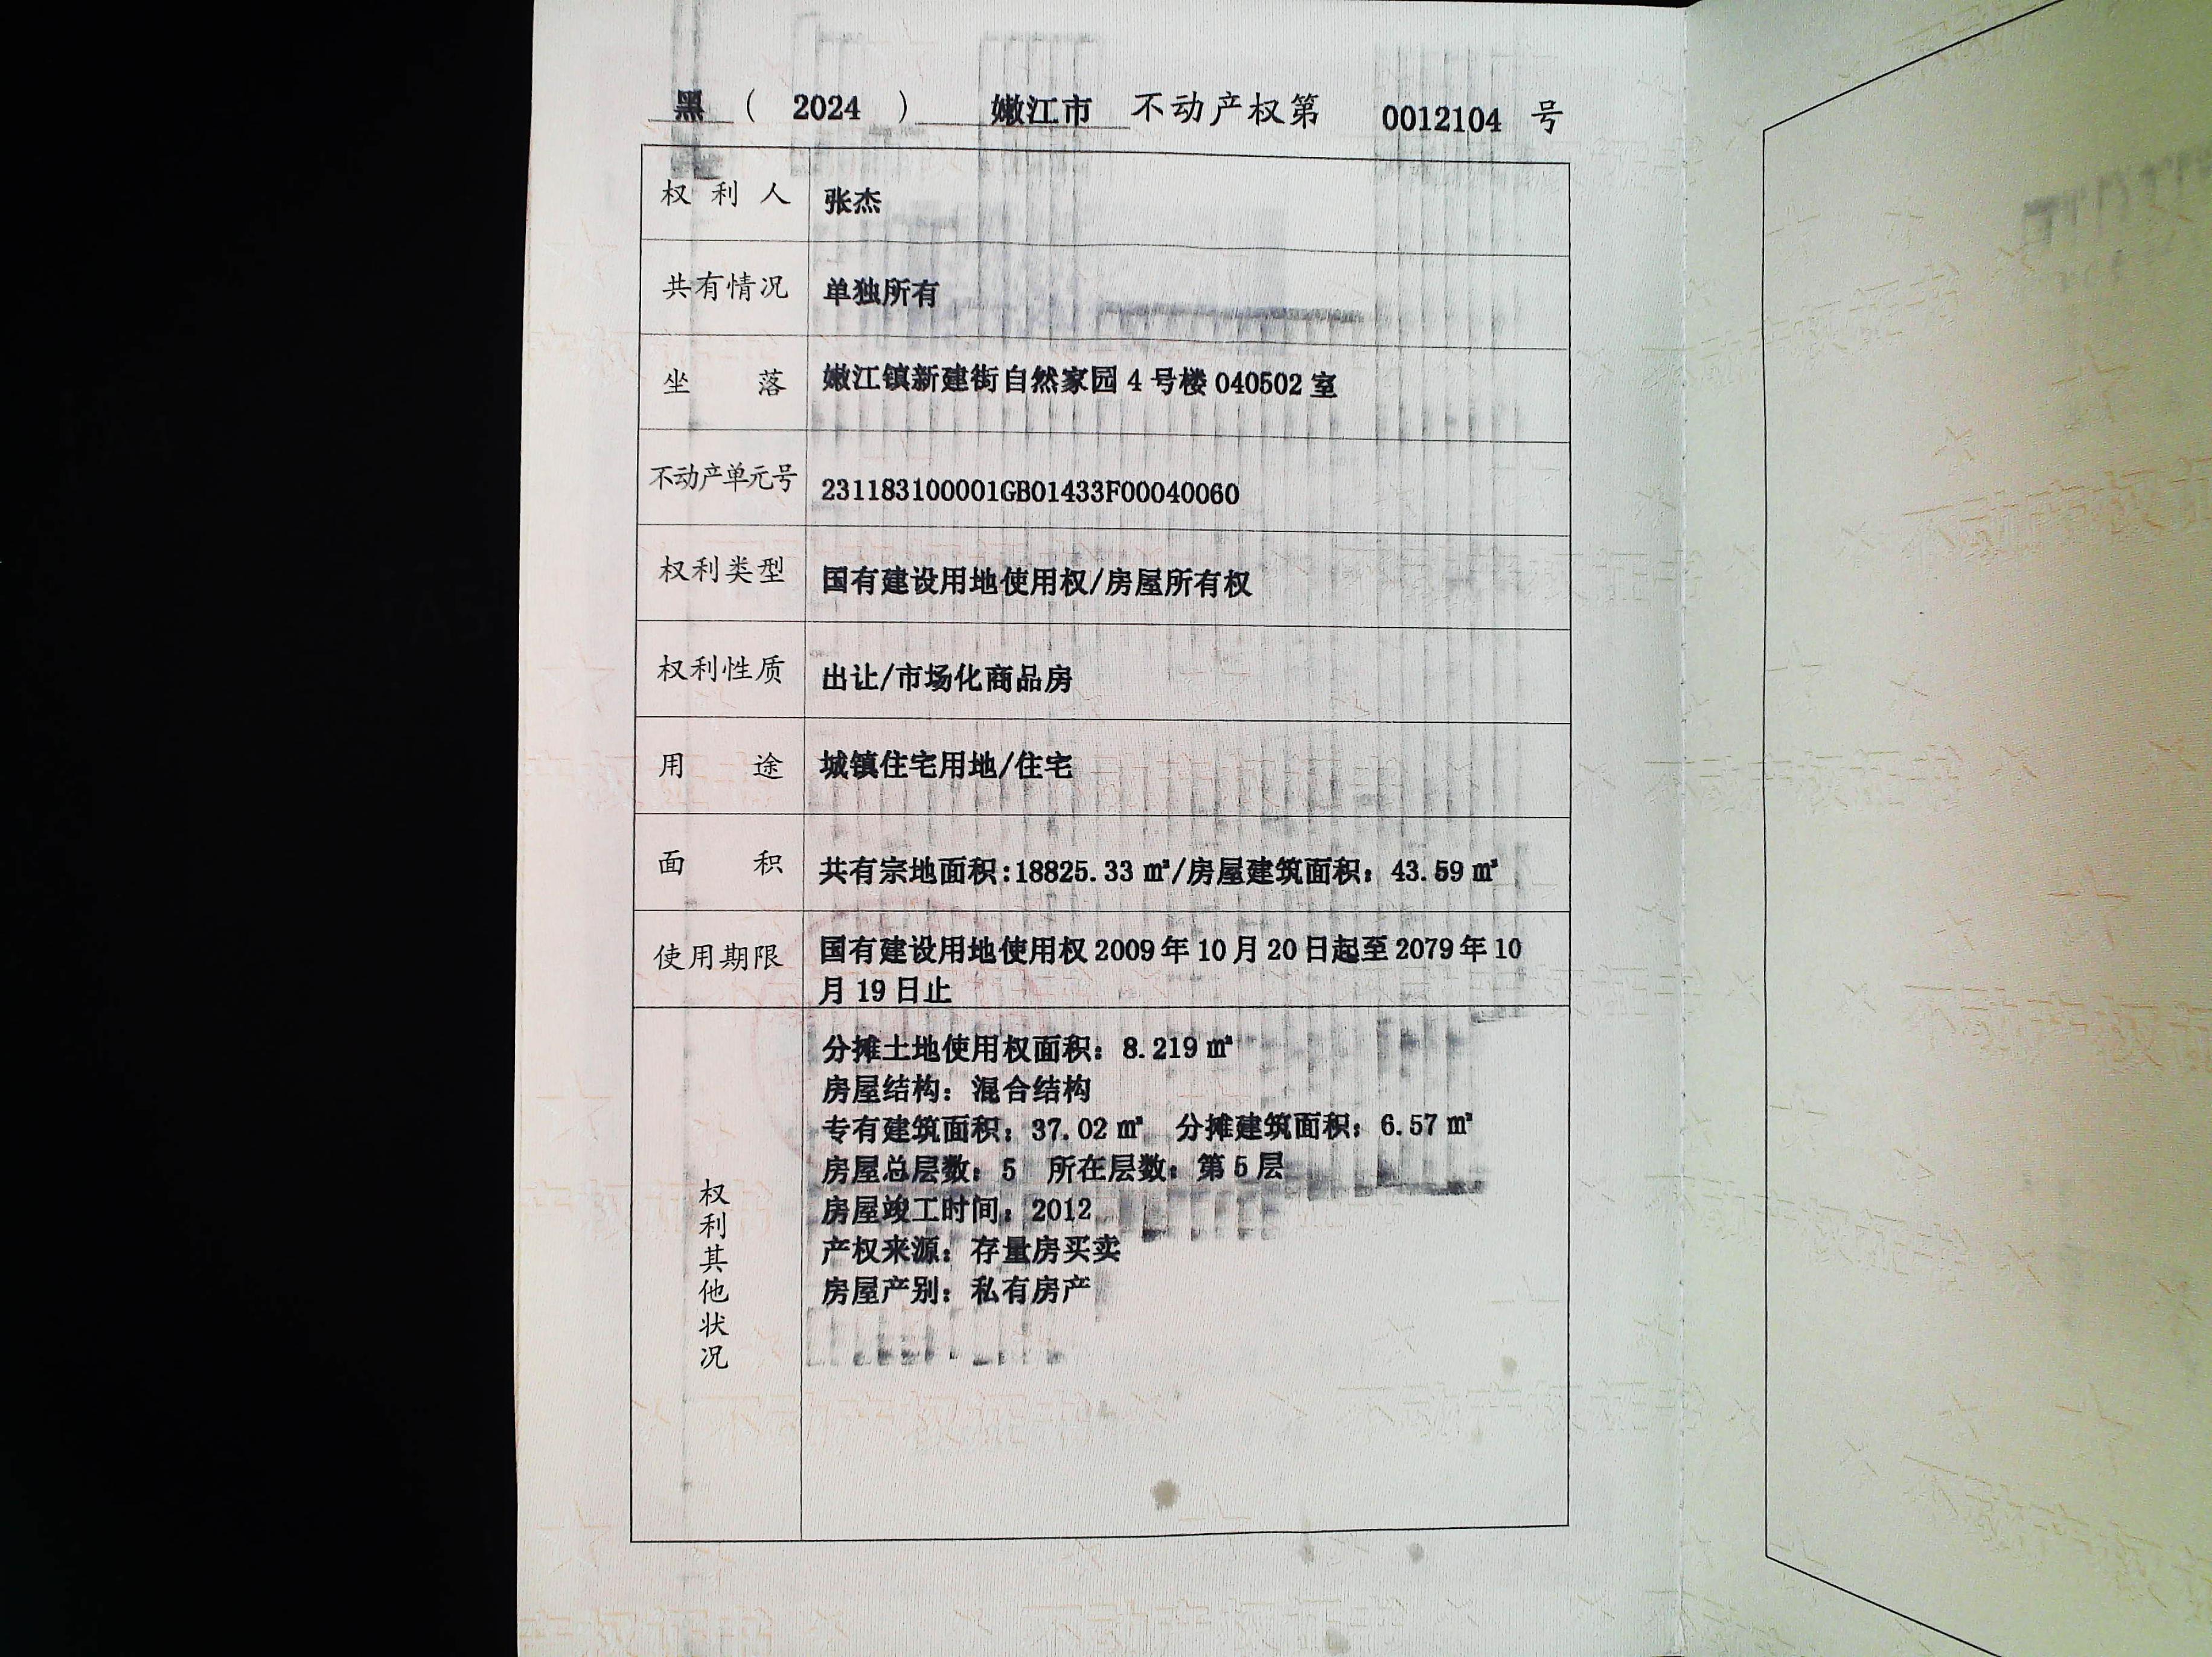 黑 ( 2024 ) 嫩江市 不动产权第 0012104 号
权利人 张杰
共有情况 单独所有
坐落 嫩江镇新建街自然家园 4 号楼 040502 室
不动产单元号 231183100001GB01433F00040060
权利类型 国有建设用地使用权/房屋所有权
权利性质 出让/市场化商品房
用途 城镇住宅用地/住宅
面积 共有宗地面积:18825.33 ㎡/房屋建筑面积：43.59 ㎡
使用期限 国有建设用地使用权 2009 年 10 月 20 日起至 2079 年 10
月 19 日止
权利其他状况
分摊土地使用权面积：8.219 ㎡
房屋结构：混合结构
专有建筑面积：37.02 ㎡ 分摊建筑面积：6.57 ㎡
房屋总层数：5 所在层数：第 5 层
房屋竣工时间：2012
产权来源：存量房买卖
房屋产别：私有房产